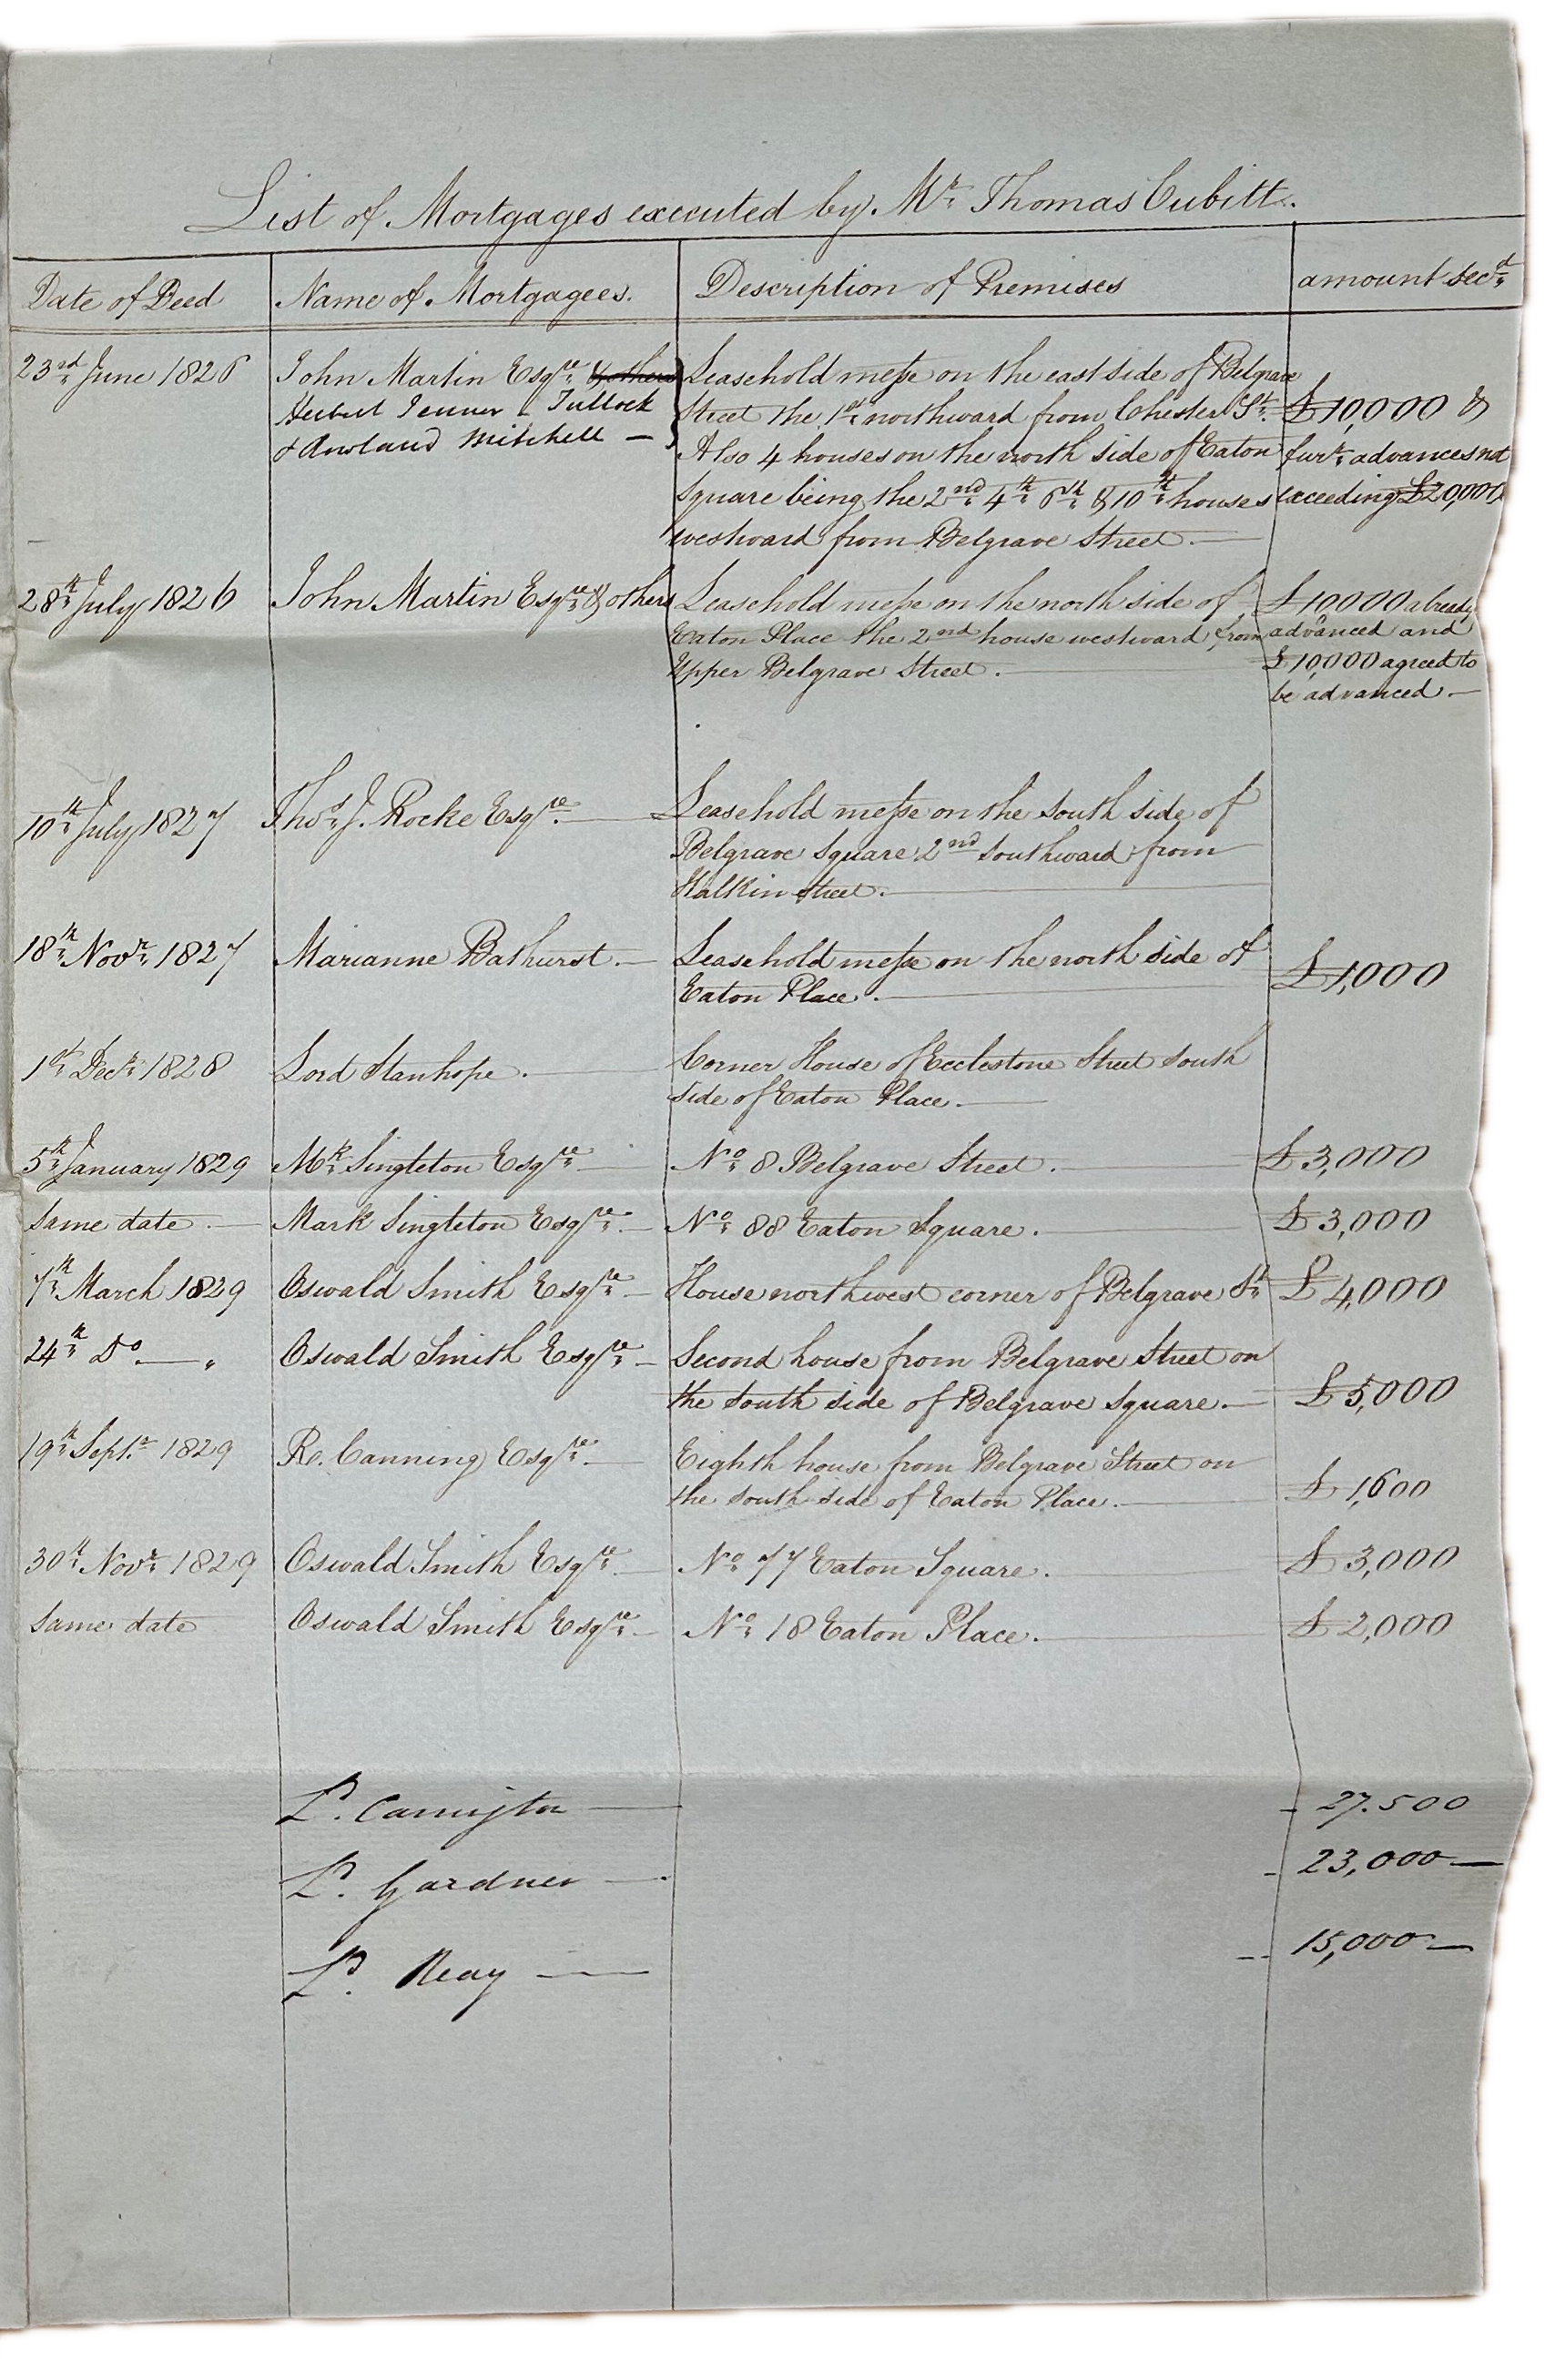 List of Mortgages executed by Mr. Thomas Cubitt.
Date of Deed Name of Mortgagees. Description of Premises amount secd.
23rd June 1826 John Martin Esqre. & others Leasehold messe on the east side of Belgrave
Herbert Jenner - Tullock Street the 1st northward from Chester St. £10,000 &
& Rowland Mitchell — Also 4 houses on the north side of Eaton furr. advances not
Square being the 2nd 4th 6th & 10th houses exceeding £20,000
westward from Belgrave Street.
28th July 1826 John Martin Esqre & others Leasehold messe on the north side of £10000 already
Eaton Place the 2nd house westward from advanced and
Upper Belgrave Street. £10,000 agreed to
be advanced.
10th July 1827 Thos. J. Rocke Esqre. Leasehold messe on the South side of
Belgrave Square 2nd Southward from
Halkin Street.
18th Novr. 1827 Marianne Bathurst. Leasehold messe on the north side of
Eaton Place. £1,000
1st Decr. 1828 Lord Stanhope. Corner House of Ecclestone Street South
side of Eaton Place.
5th January 1829 Mk. Singleton Esqre. No. 8 Belgrave Street. £3,000
Same date Mark Singleton Esqre. No. 88 Eaton Square. £3,000
7th March 1829 Oswald Smith Esqre. House northwest corner of Belgrave St. £4,000
24th Do. " Oswald Smith Esqre. Second house from Belgrave Street on
the South side of Belgrave Square. £5,000
19th Septr. 1829 R. Canning Esqre. Eighth house from Belgrave Street on
the South side of Eaton Place. £1,600
30th Novr. 1829 Oswald Smith Esqre. No. 77 Eaton Square. £3,000
Same date Oswald Smith Esqre. No. 18 Eaton Place. £2,000
Ld. Carrington 27.500
Ld. Gardner 23,000
Ld. Reay 15,000